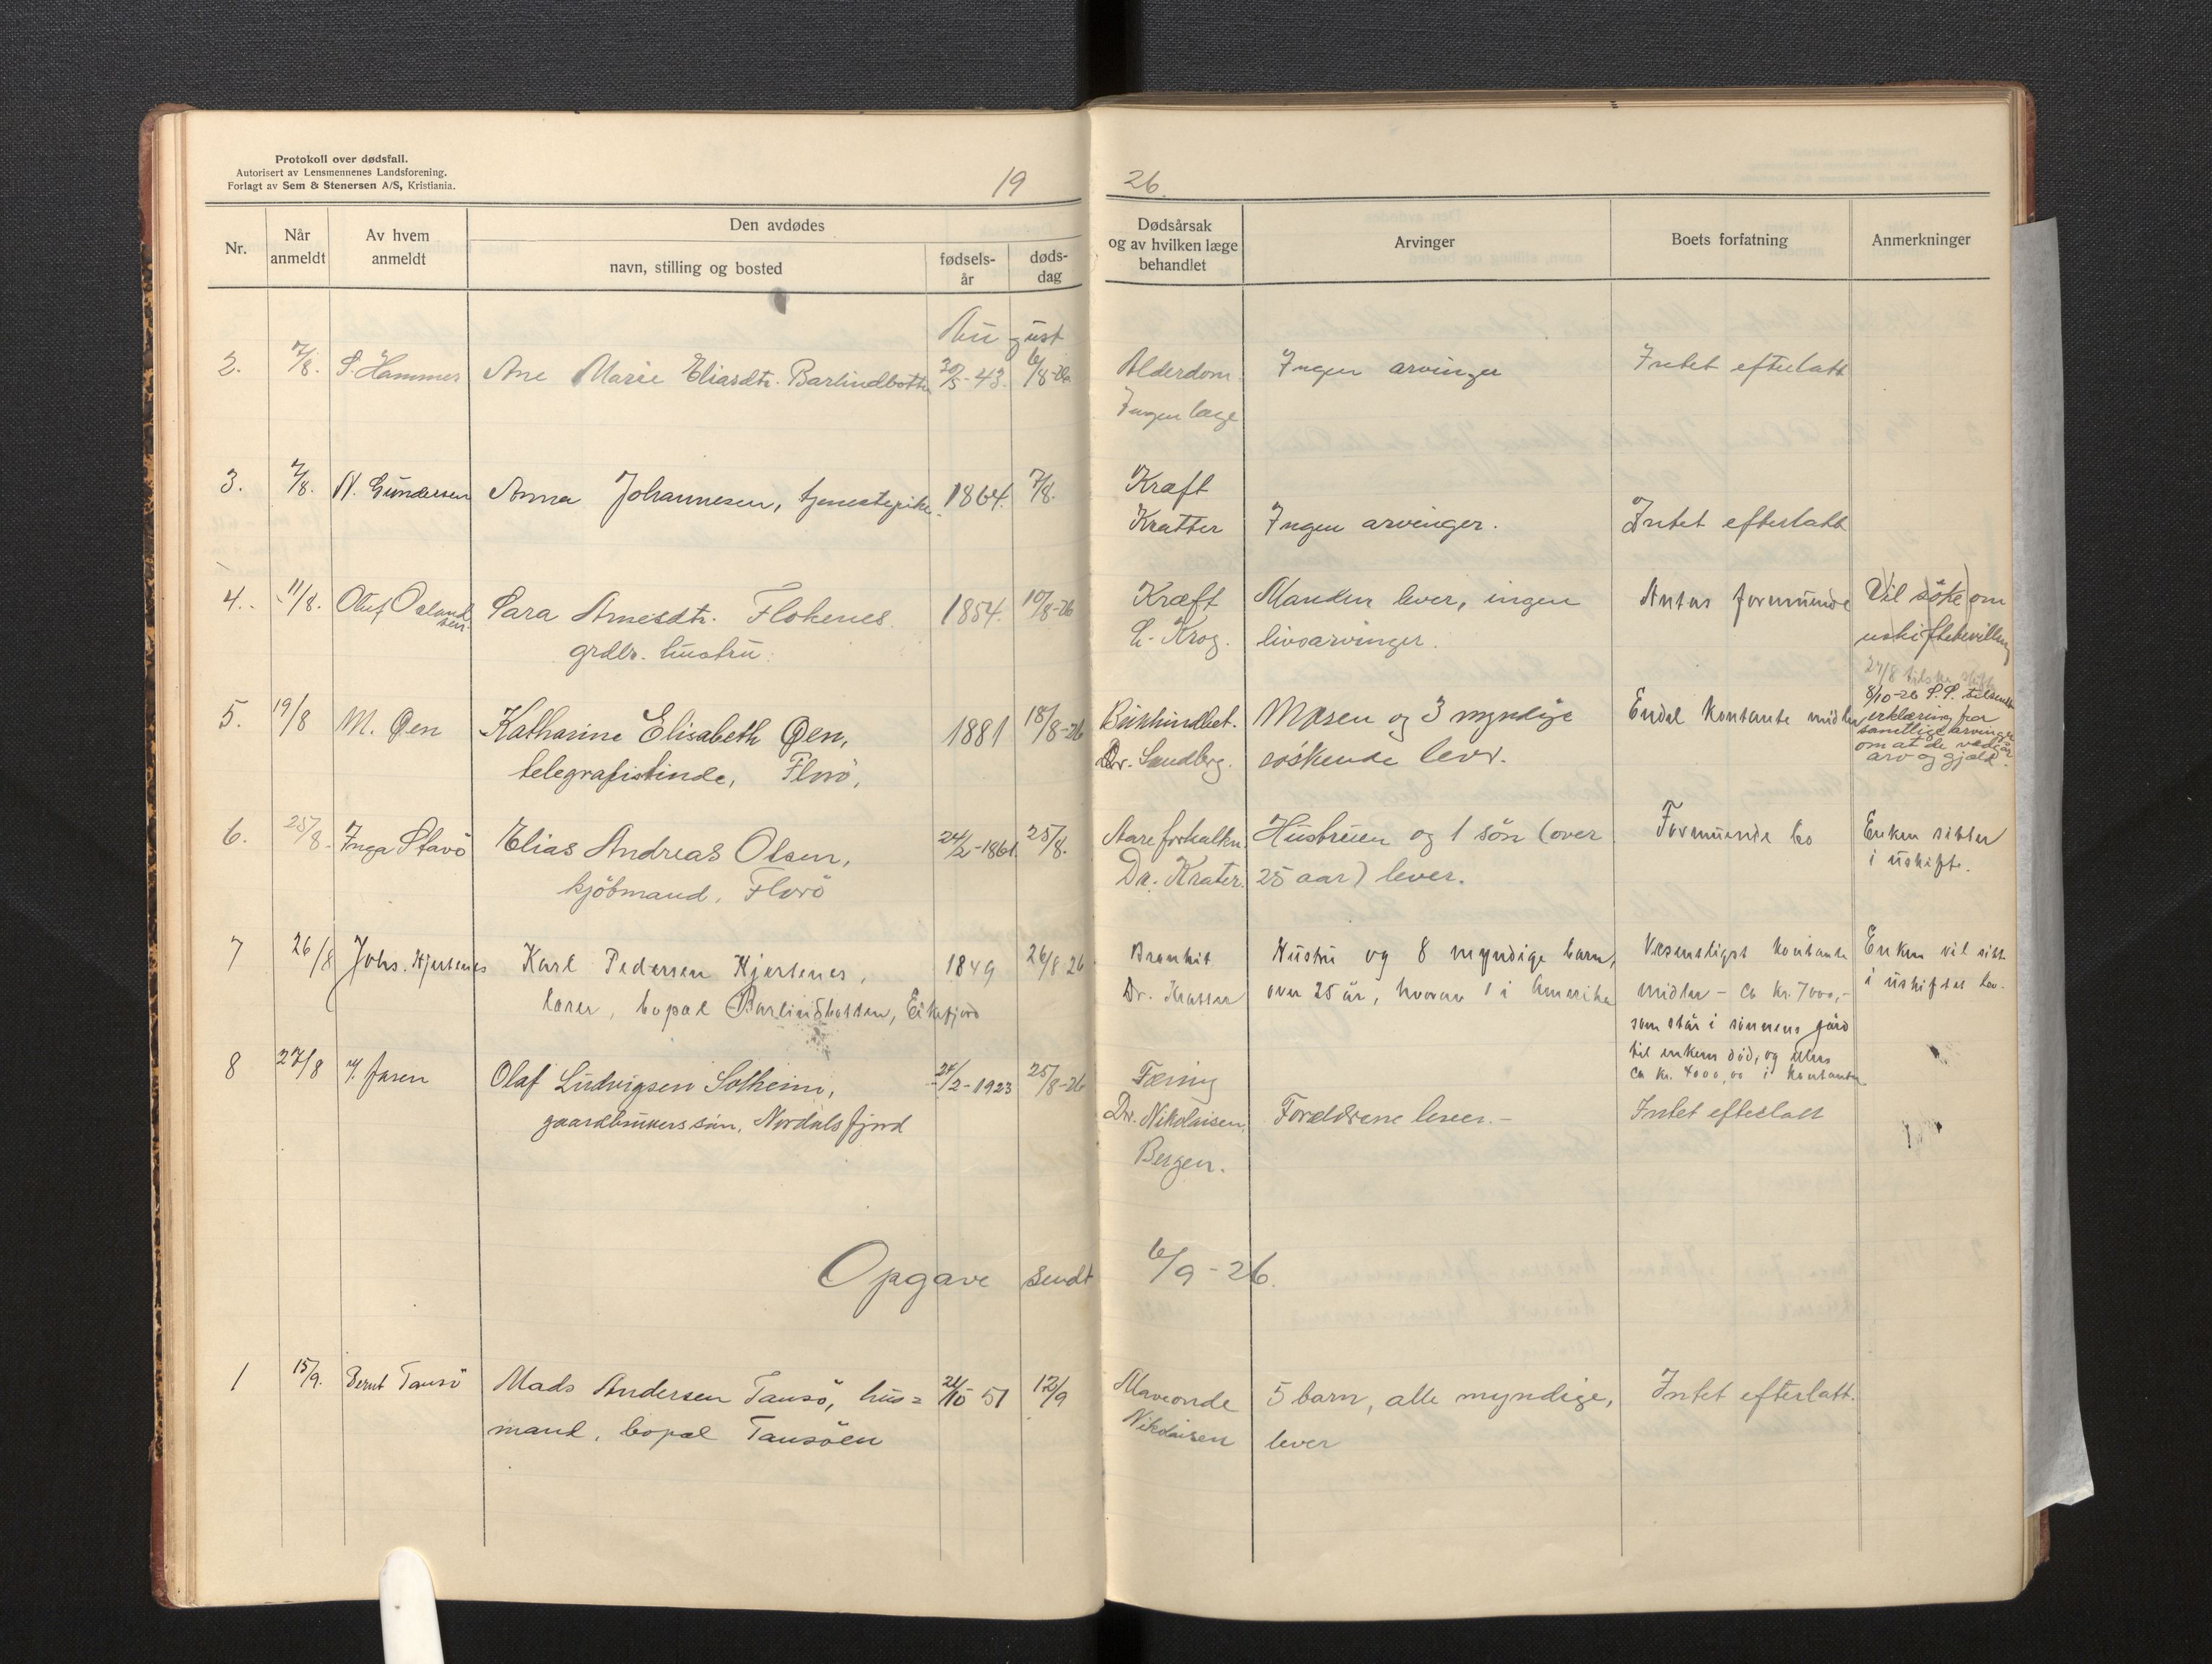 Protokoll over dødsfall.
Autorisert av Lensmennenes Landsforening.
Forlagt av Sem & Stenersen A/S, Kristiania.
19 26.
Nr.
Når anmeldt
Av hvem anmeldt
Den avdødes
navn, stilling og bosted
fødsels-år
døds-dag
Dødsårsak og av hvilken læge behandlet
Arvinger
Boets forfatning
Anmerkninger
August
2. 7/8. S. Hammer Ane Marie Eliasdtr. Barlindbotten 20/5-43. 6/8-26 Alderdom. Ingen arvinger Intet efterlatt
Ingen læge
3. 7/8. N. Gundersen Anna Johannesen, tjenestepike. 1864. 7/8. Kræft
Kratter Ingen arvinger. Intet efterlatt
4. 11/8. Oluf Osland Sara Arnesdtr. Flokenes 1854. 10/8-26 Kræft Manden lever, ingen Antas formuende Vil söke om
sen. grdbr. hustru. Krog. livsarvinger. uskiftebevilling
27/8
5. 19/8 M. Øen Katharine Elisabeth Øen, 1881 18/8-26 Bukhindbet. Moren og 3 myndige Endel kontante midler 8/10-26 S.S. tilsendt
telegrafistinde, Florö, Dr. Sandberg. söskende lever. erklæring fra
samtlige arvinger
om at de vedgår
arv og gjæld.
6. 25/8. Inga Stavö Elias Andreas Olsen, 24/2-1861. 25/8. Aareforkalkn. Hustruen og 1 sön (over Formuende bo Enken sitter
kjöbmand, Florö Dr. Krater. 25 aar) lever. i uskifte.
7 26/8 Johs. Hjertenes Karl Pedersen Hjertenes, 1849 26/8-26 Bronkit Hustru og 8 myndige barn, Væsentligst kontante Enken vil sitte
lærer, bopæl Barlindbotten, Eikefjord Dr. Kratter over 25 år, hvorav 1 i Amerika midler - ca kr. 7000,- i uskiftet bo.
som står i sönnens gård
til enkens död, og ellers
ca kr. 4000,00 i kontanter
8 27/8 Olaf Ludvigsen Solheim, /2-1923 25/8-26 Tæring
gaardbrukerssön, Nordalsfjord Dr. Nikolaisen, Forældrene lever.- Intet efterlatt
Bergen.
Opgave sendt 6/9-26.
1 15/9. Bernt Tansö Mads Andersen Tansö, hus= 21/10 51 12/9 Maveonde 5 barn, alle myndige, Intet efterlatt.
mand, bopæl Tansöen Nikolaisen lever